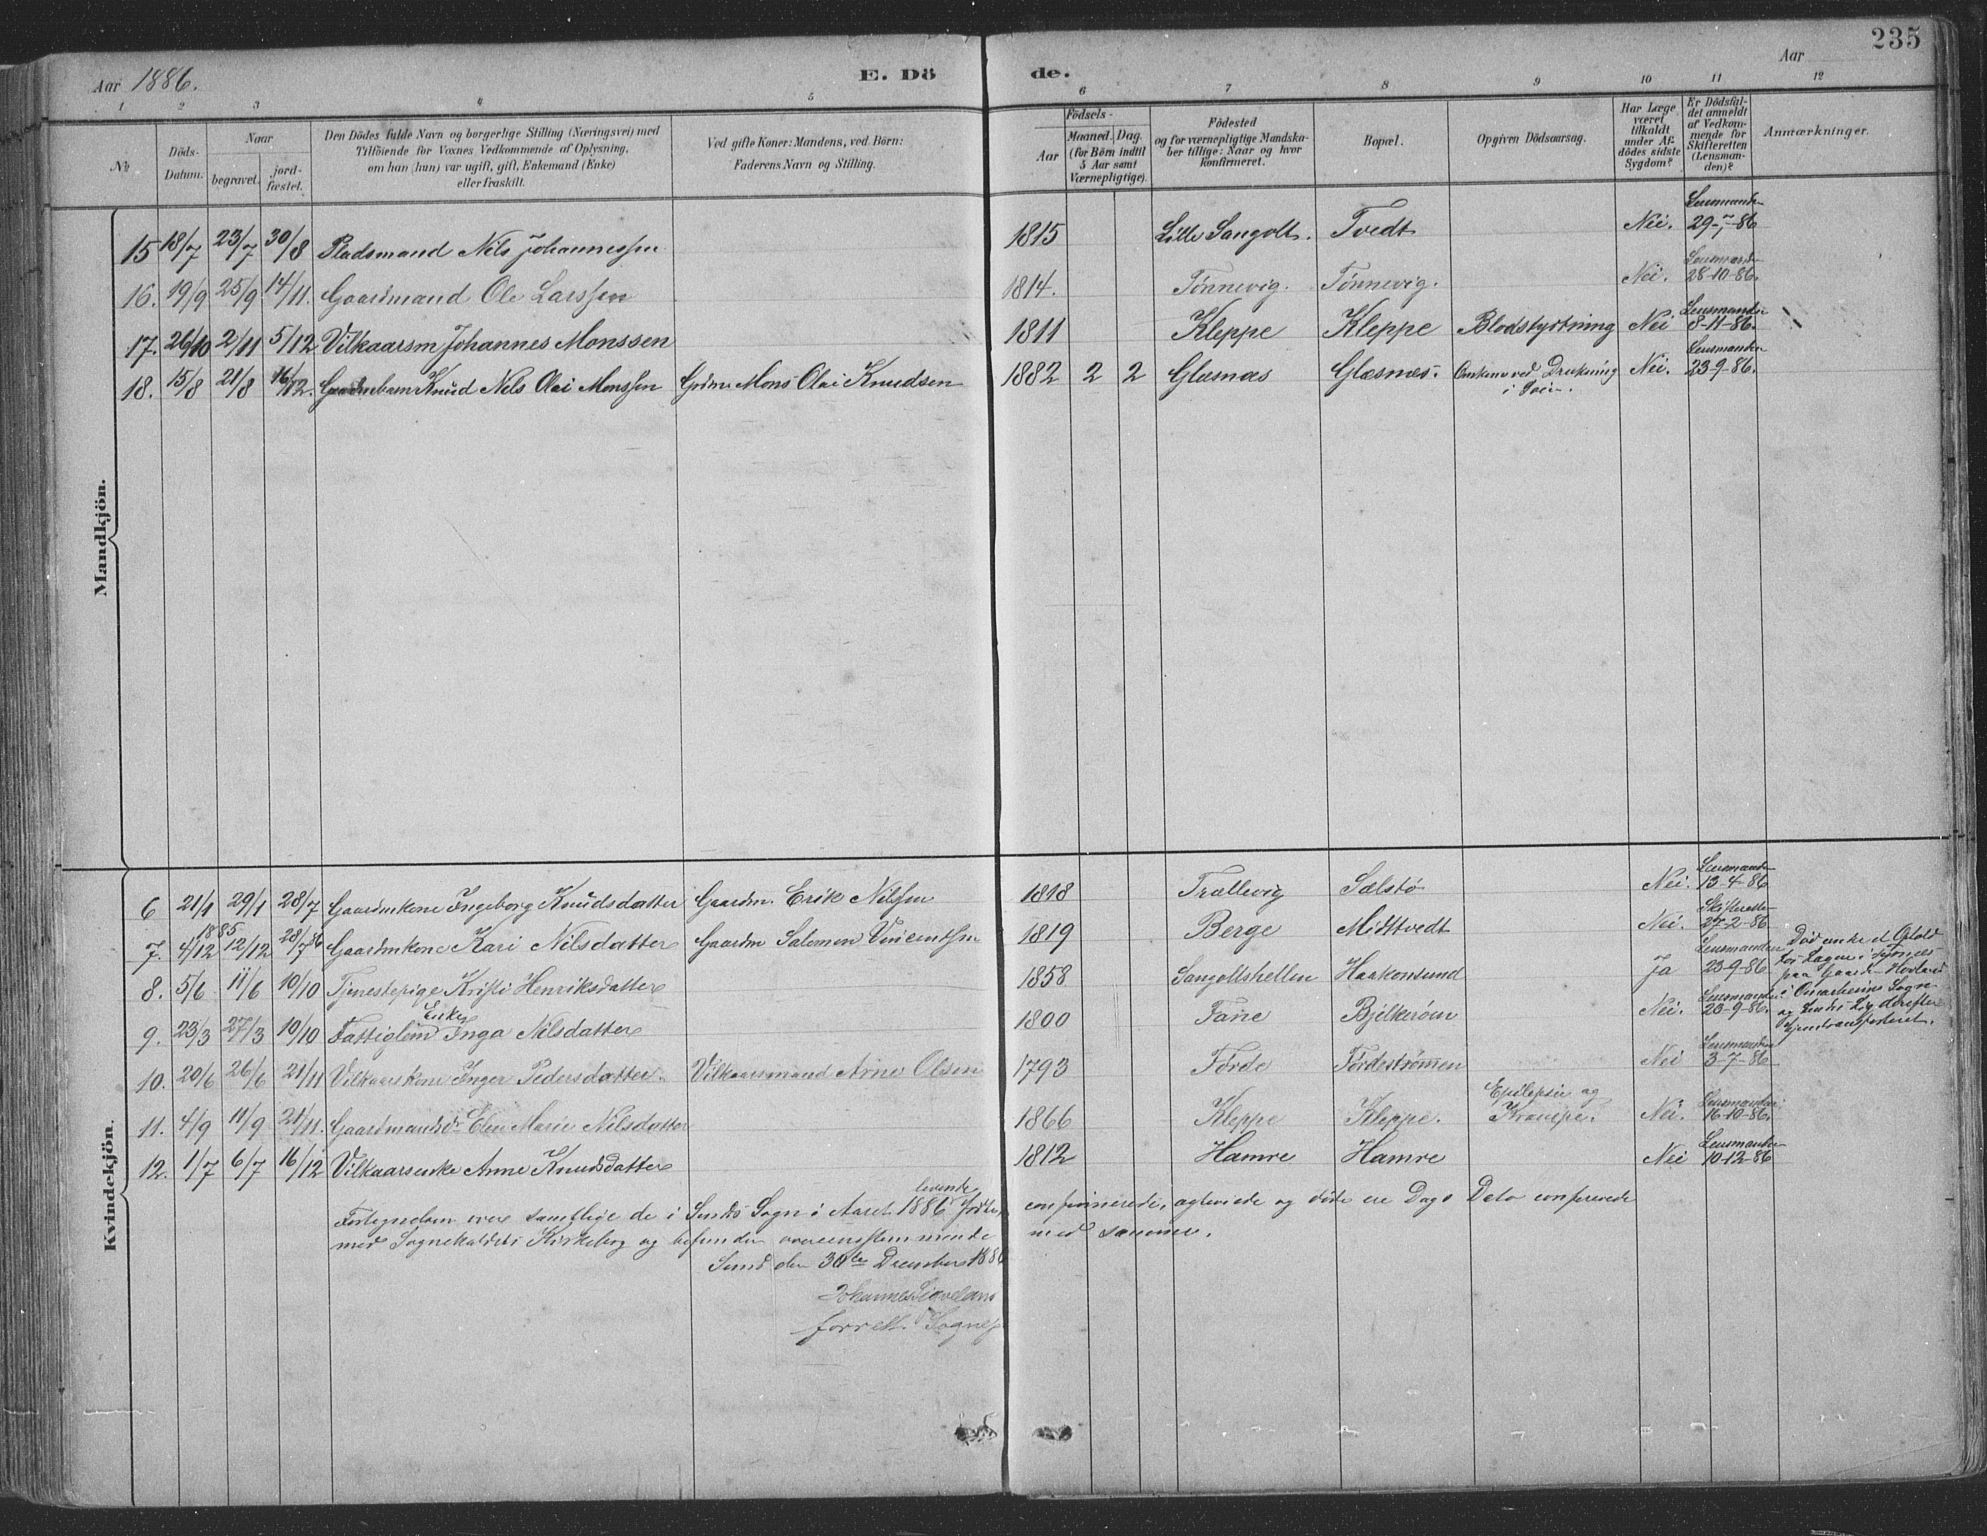 235
Aar 1886.
E. Dö de.
Aar
1 2 3 4 5 6 7 8 9 10 11 12
No
Döds-Datum.
Naar
begravet.
jord-fæstet.
Den Dödes fulde Navn og borgerlige Stilling (Næringsvei) med
Tilföiende for Voxnes Vedkommende af Oplysning,
om han (hun) var ugift, gift, Enkemand (Enke)
eller fraskilt.
Ved gifte Koner: Mandens, ved Börn:
Faderens Navn og Stilling.
Födsels-
Aar
Maaned. Dag.
(for Börn indtil
5 Aar samt
Værnepligtige).
Födested
og for værnepligtige Mandska-
ber tillige: Naar og hvor
konfirmeret.
Bopæl.
Opgiven Dödsaarsag.
Har Læge
været
tilkaldt
under Af-
dödes sidste
Sygdom?
Er Dödsfal-
det anmeldt
af Vedkom-
mende for
Skifteretten
(Lensman-
den)?
Anmærkninger.
Mandkjön.
15 18/7 23/7 30/8 Pladsmand Nils Johannessen 1815 Lille Sangolt. Tvedt Nei. Lensmanden 29-7-86
16. 19/9 25/9 14/11. Gaardmand Ole Larssen 1814. Tønnevig. Tønnevig. Nei. Lensmanden 28-10-86.
17. 26/10 2/11 5/12 Vilkaarsm Johannes Monssen 1811 Kleppe Kleppe Blodstyrtning Nei Lensmanden 8-11-86.
18. 15/8 21/8 16/12. Gaardmbarn Knud Nels Olai Monssen Grdm. Mons Olai Knudsen 1882 2 2 Glæsnæs Glæsnes. Omkom ved Drukning i Søen. Nei. Lensmanden 23-9-86.
Kvindekjön.
6 21/1 29/1 28/7 Gaardmkone Ingeborg Knudsdatter Gaardm. Erik Nilssen 1818 Trællevig Sælstø Nei. Lensmanden 13-4-86
7. 4/12 1885 12/12 28/7 86 Gaardmkone Kari Nilsdatter Gaardm Salomon Vincentsen 1819 Berge Midttvedt Nei. Skifteretten 27-2-86
8. 5/6 11/6 10/10 Tjenestepige Kristi Henriksdatter 1858 Sangoltshellen Haakonsund Ja Lensmanden 23-9-86
9. 23/3 27/3 10/10 Fattiglem Enke Inga Nilsdatter 1800 Fane Bjelkerøen Nei. Lensmanden 20-9-86.
10. 20/6 26/6 21/11 Vilkaarskone Inger Pedersdatter. Vilkaarsmand Arne Olsen 1793 Førde Førdestrømmen Nei Lensmanden 3-7-86
11. 4/9 11/9 21/11. Gaardmandsdr Elen Marie Nilsdatter 1866 Kleppe Kleppe. Epilepsie og Krampe. Nei. Lensmanden 16-10-86.
12. 1/7 6/7 16/12 Vilkaarsenke Anne Knudsdatter 1812 Hamre Hamre Nei Lensmanden 10-12-86
Død under et Ophold
paa Gaard Hovland
Sogn
Fortegnelsen over samtlige de i Sunds Sogn i Aaret 1886 levende fødte, confirmerede, egteviede og døde ere Dags Dato confererede
med Sognekaldets Kirkebog og befunden overensstemmende med samme.
Sund den 30te December 1886
Johannes
Sognepr